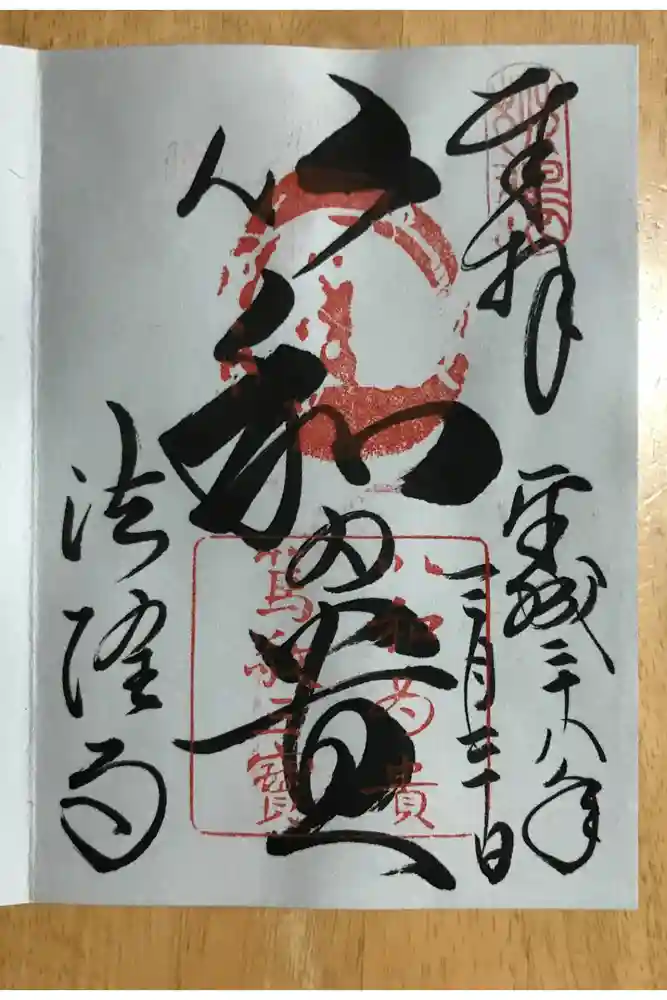 奉拝
平成二十八年
三月三十日
以和為貴
法隆寺
以和為貴
篤敬三寶